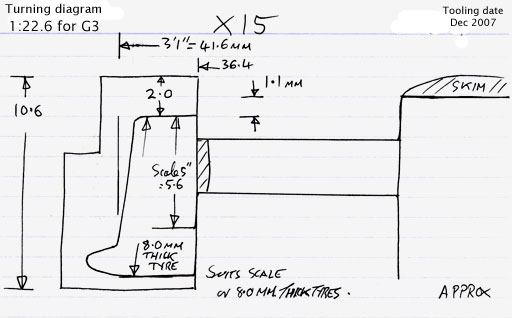 Turning diagram
1:22.6 for G3
X15
Tooling date
Dec 2007
3'1"=41.6MM
36.4
1.1MM
2.0
SKIM
10.6
Scale 5"
=5.6
8.0MM
THICK
TYRE
SUITS SCALE
or 8.0MM THICK TYRES.
APPROX